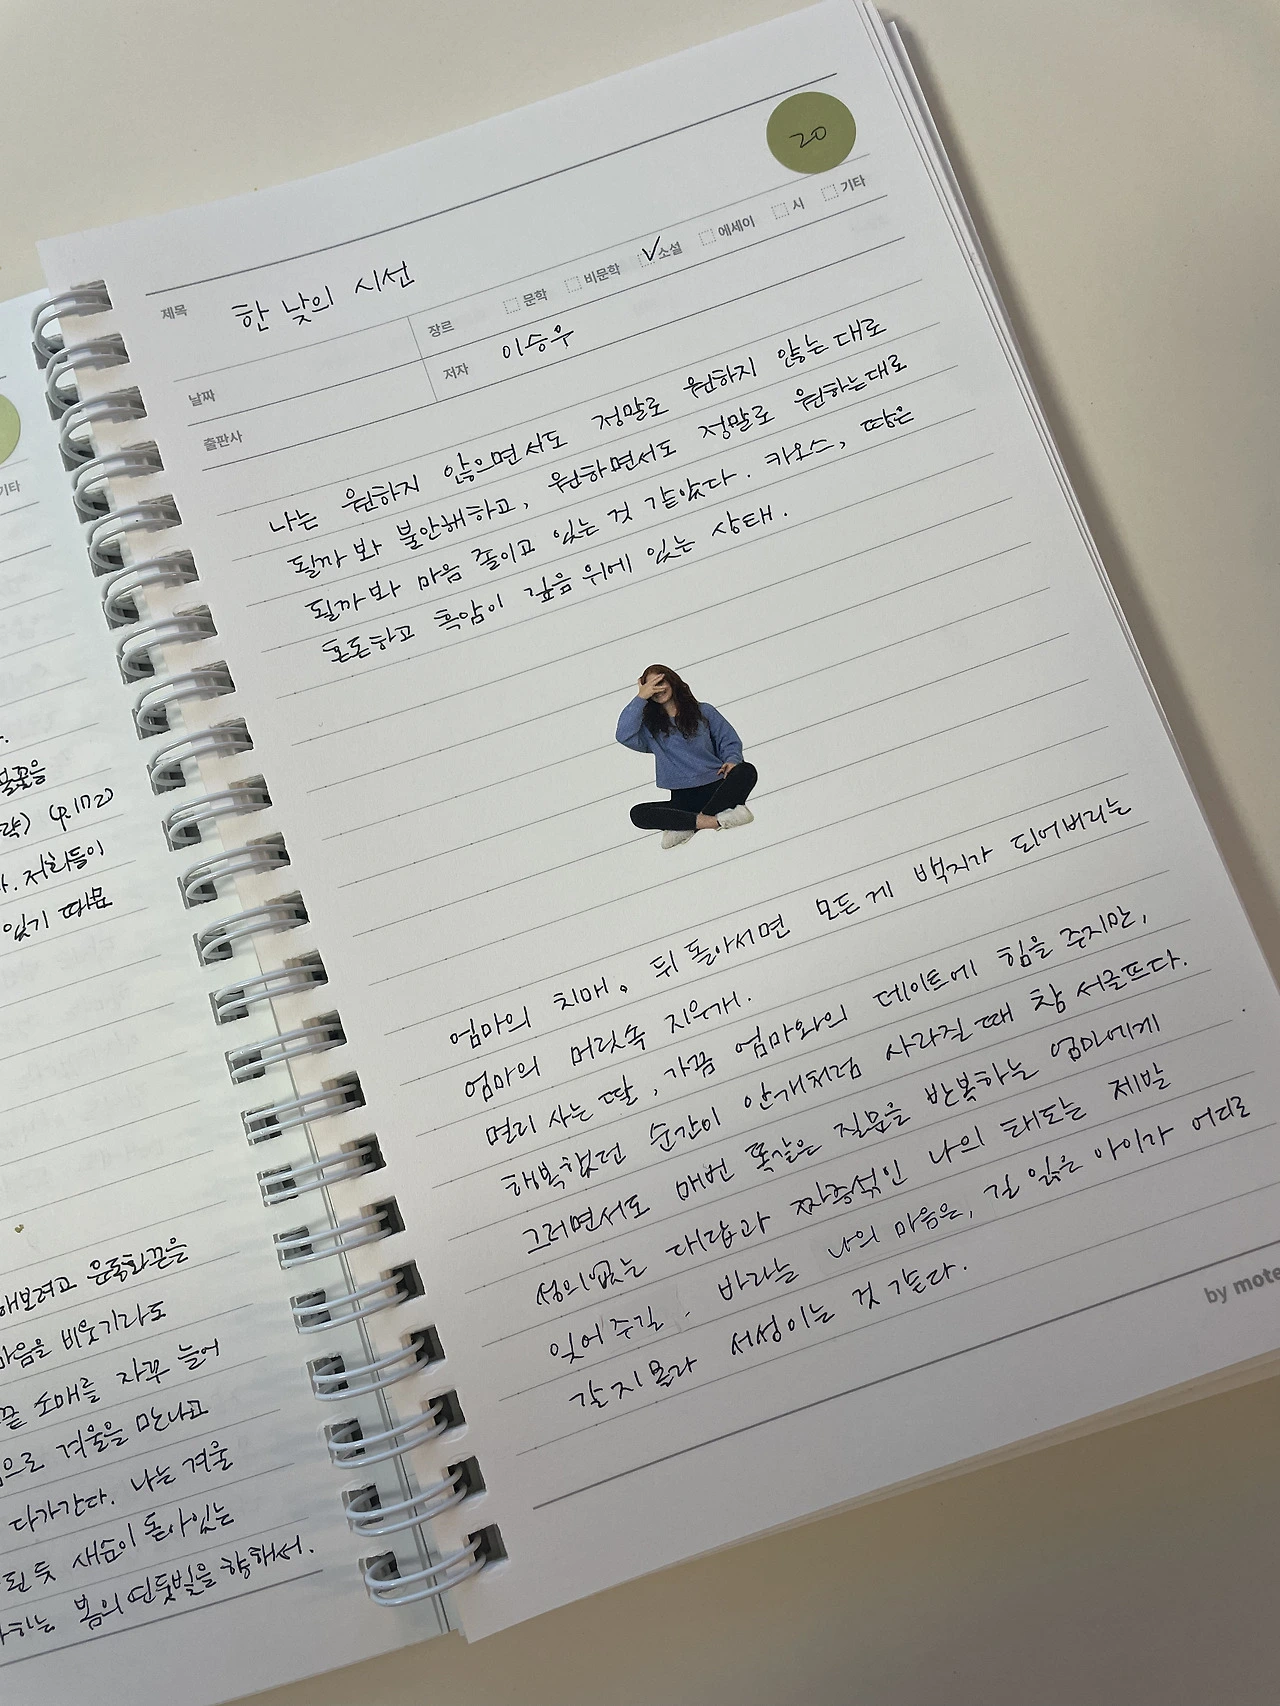 20
제목 한 낮의 시선
장르 문학 비문학 소설 에세이 시 기타
날짜
저자 이승우
출판사
나는 원하지 않으면서도 정말로 원하지 않는대로
될까봐 불안해하고, 원하면서도 정말로 원하는대로
될까봐 마음 졸이고 있는 것 같았다. 카오스, 땅은
혼돈하고 흑암이 깊음 위에 있는 상태.
엄마의 치매. 뒤 돌아서면 모든게 백지가 되어버리는
엄마의 머릿속 지우개.
멀리 사는 딸, 가끔 엄마와의 데이트에 힘을 주지만,
행복했던 순간이 안개처럼 사라질때 참 서글프다.
그러면서도 매번 똑같은 질문을 반복하는 엄마에게
성의없는 대답과 짜증섞인 나의 태도는 제발
잊어주길. 바라는 나의 마음은, 길 잃은 아이가 어디로
갈지 몰라 서성이는 것 같다.
by mote
기타
(p.172)
. 저희들이
있기 때문
해보려고 운동화끈을
마음을 비웃기라도
끝 소매를 자꾸 늘어
으로 겨울을 만나고
다가간다. 나는 겨울
된 듯 새숨이 돋아있는
하는 봄의 연둣빛을 향해서.